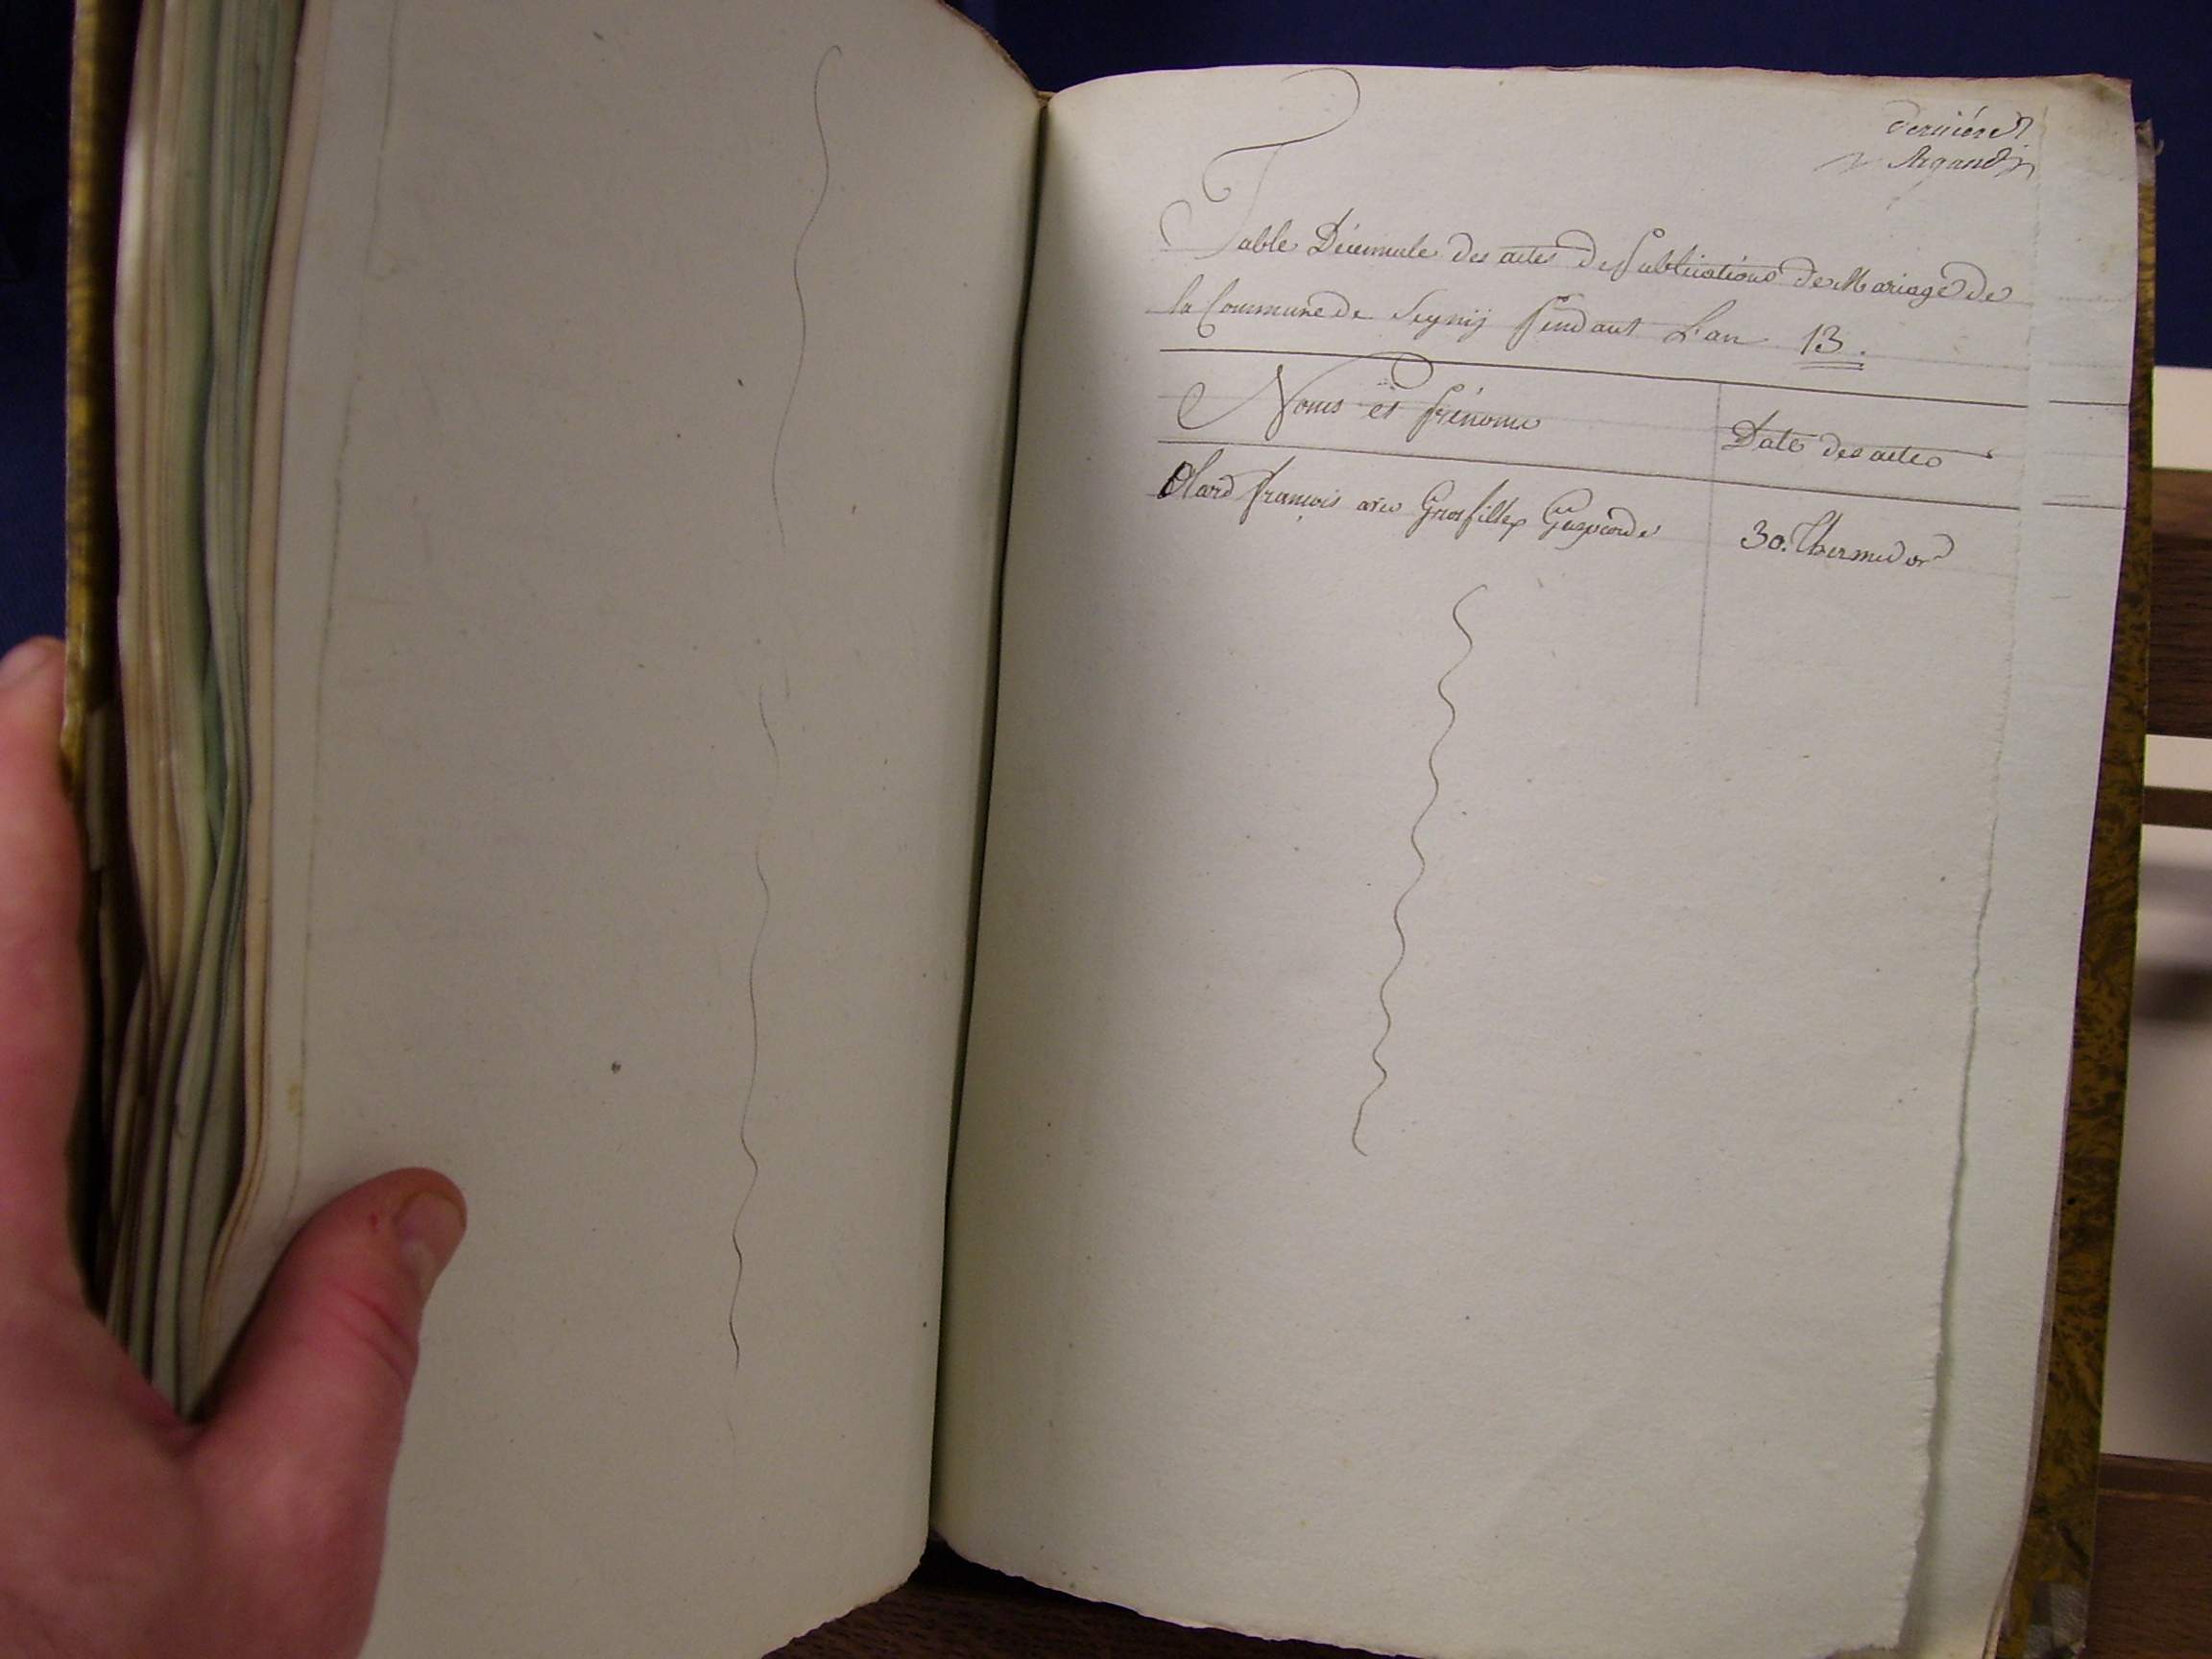 dernière
Argand
Table Décennale des actes de Publications de Mariage de
la Commune de Seynij pendant L'an 13.
Noms et prénoms
Date des actes
Olard françois avec Grosfillex Gasparde
30. Thermidor